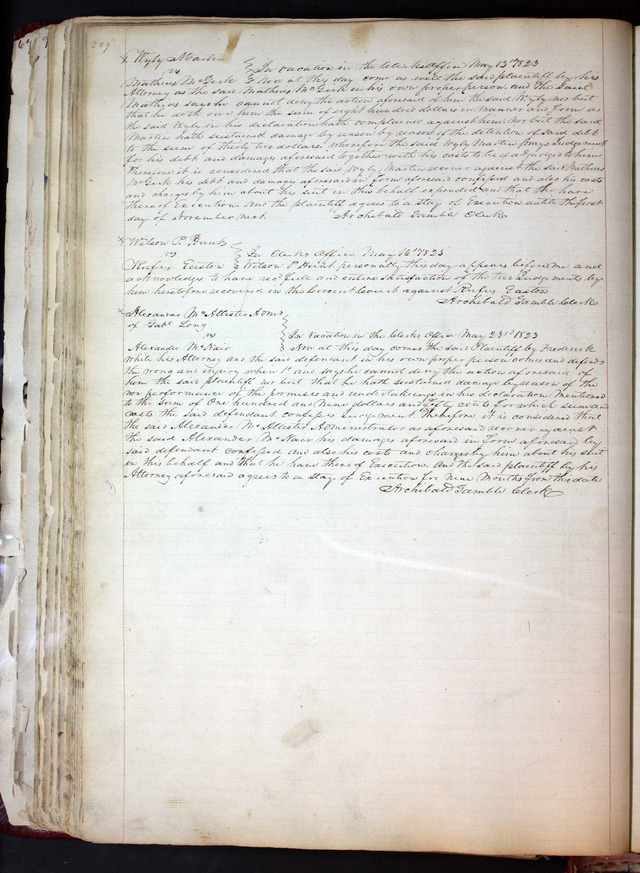 209
Wyly Martin } In vacation in the clerks office May 13th 1823
vs
Mathias McGirk } Now at this day come as well the said plaintiff by his
Attorney as the said Mathias McGirk in his own proper person and the said
Mathias says he cannot deny the action aforesaid of him the said Wyly nor but
that he doth owe him the sum of eight hundred dollars in manner and form as
the said Wyly in his declaration hath complained against him nor but the said
Martin hath sustained damage by reason by reason of the detention of said debt
to the sum of thirty two dollars. wherefore the said Wyly Martin prays Judgement
for his debt and damages aforesaid together with his costs to be adjudged to him
Therefore it is considered that the said Wyly Martin recover against the said Mathias
McGirk his debt and damages aforesaid in form aforesaid confessed and also his costs
and charges by him about his suit in this behalf expended and that he have
thereof Execution. And the plaintiff agrees to a stay of Execution until the first
day of November next. Archibald Gamble Clerk
Wilson P. Hunt
vs } In Clerks Office May 16th 1823
Rufus Easton } Wilson P Hunt personally this day appears before me and
acknowledges to have recd full and entire satisfaction of the two Judgements by
him heretofore recovered in the Circuit Court against Rufus Easton
Archibald Gamble Clerk
Alexander McAllister Admr
of Gabl Long
vs } In vacation in the Clerks Office May 23rd 1823
Alexander McNair } Now at this day comes the said Plaintiff by Frederick
White his Attorney and the said defendant in his own proper person comes and defends
the wrong and injury when &c and says he cannot deny the action aforesaid of
him the said plaintiff nor but that he hath sustained damage by reason of the
non performance of the promises and undertakings in his declaration mentioned
to the sum of One hundred and Nine dollars and fifty cents for which sum and
costs the said defendant confesses Judgement. Therefore it is considered that
the said Alexander McAllister Administrator as aforesaid recover against
the said Alexander McNair his damages aforesaid in form aforesaid by
said defendant confessed and also his costs and charges by him about his suit
in this behalf and that he have thereof Execution. And the said plaintiff by his
Attorney aforesaid agrees to a stay of Execution for Nine Months from this date
Archibald Gamble Clerk